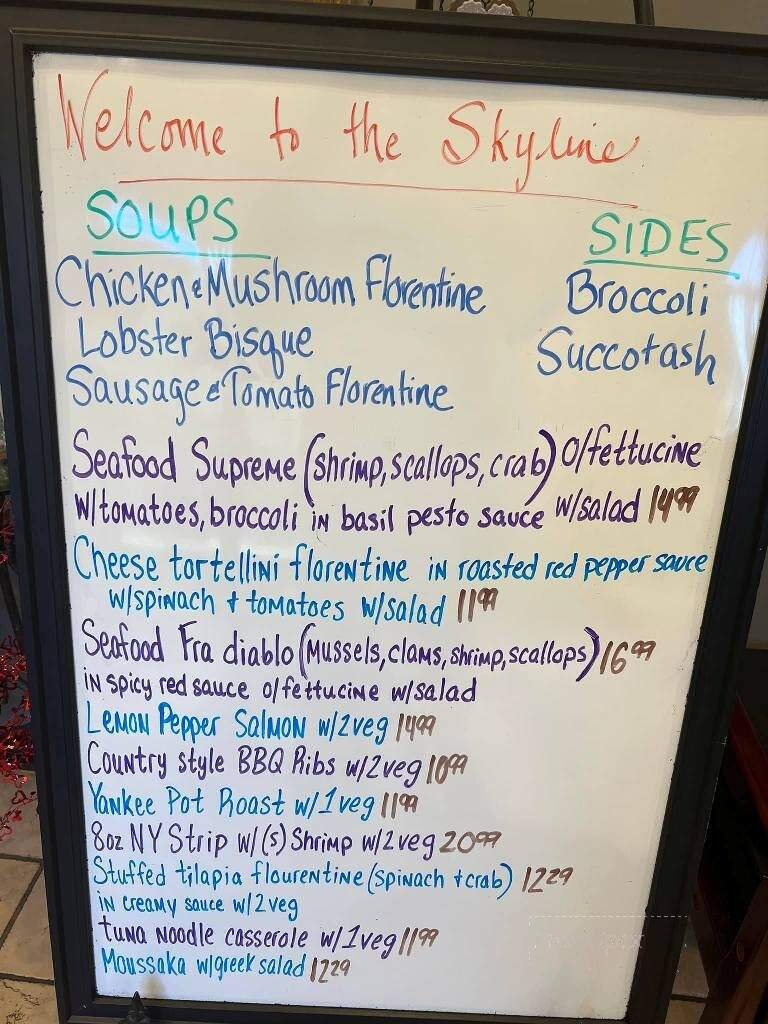 Welcome to the Skyline
SOUPS
SIDES
Chicken & Mushroom Florentine
Broccoli
Lobster Bisque
Succotash
Sausage & Tomato Florentine
Seafood Supreme (shrimp, scallops, crab) O/fettucine
w/tomatoes, broccoli in basil pesto sauce w/salad 14.99
Cheese tortellini florentine in roasted red pepper sauce
w/spinach + tomatoes w/salad 11.99
Seafood Fra diablo (Mussels, clams, shrimp, scallops) 16.99
in spicy red sauce o/fettucine w/salad
Lemon Pepper Salmon w/2veg 14.99
Country style BBQ Ribs w/2veg 10.99
Yankee Pot Roast w/1veg 11.99
8oz NY Strip w/(5) Shrimp w/2veg 20.99
Stuffed tilapia flourentine (spinach + crab) 12.29
in creamy sauce w/2veg
tuna noodle casserole w/1veg 11.99
Moussaka w/greek salad 12.29